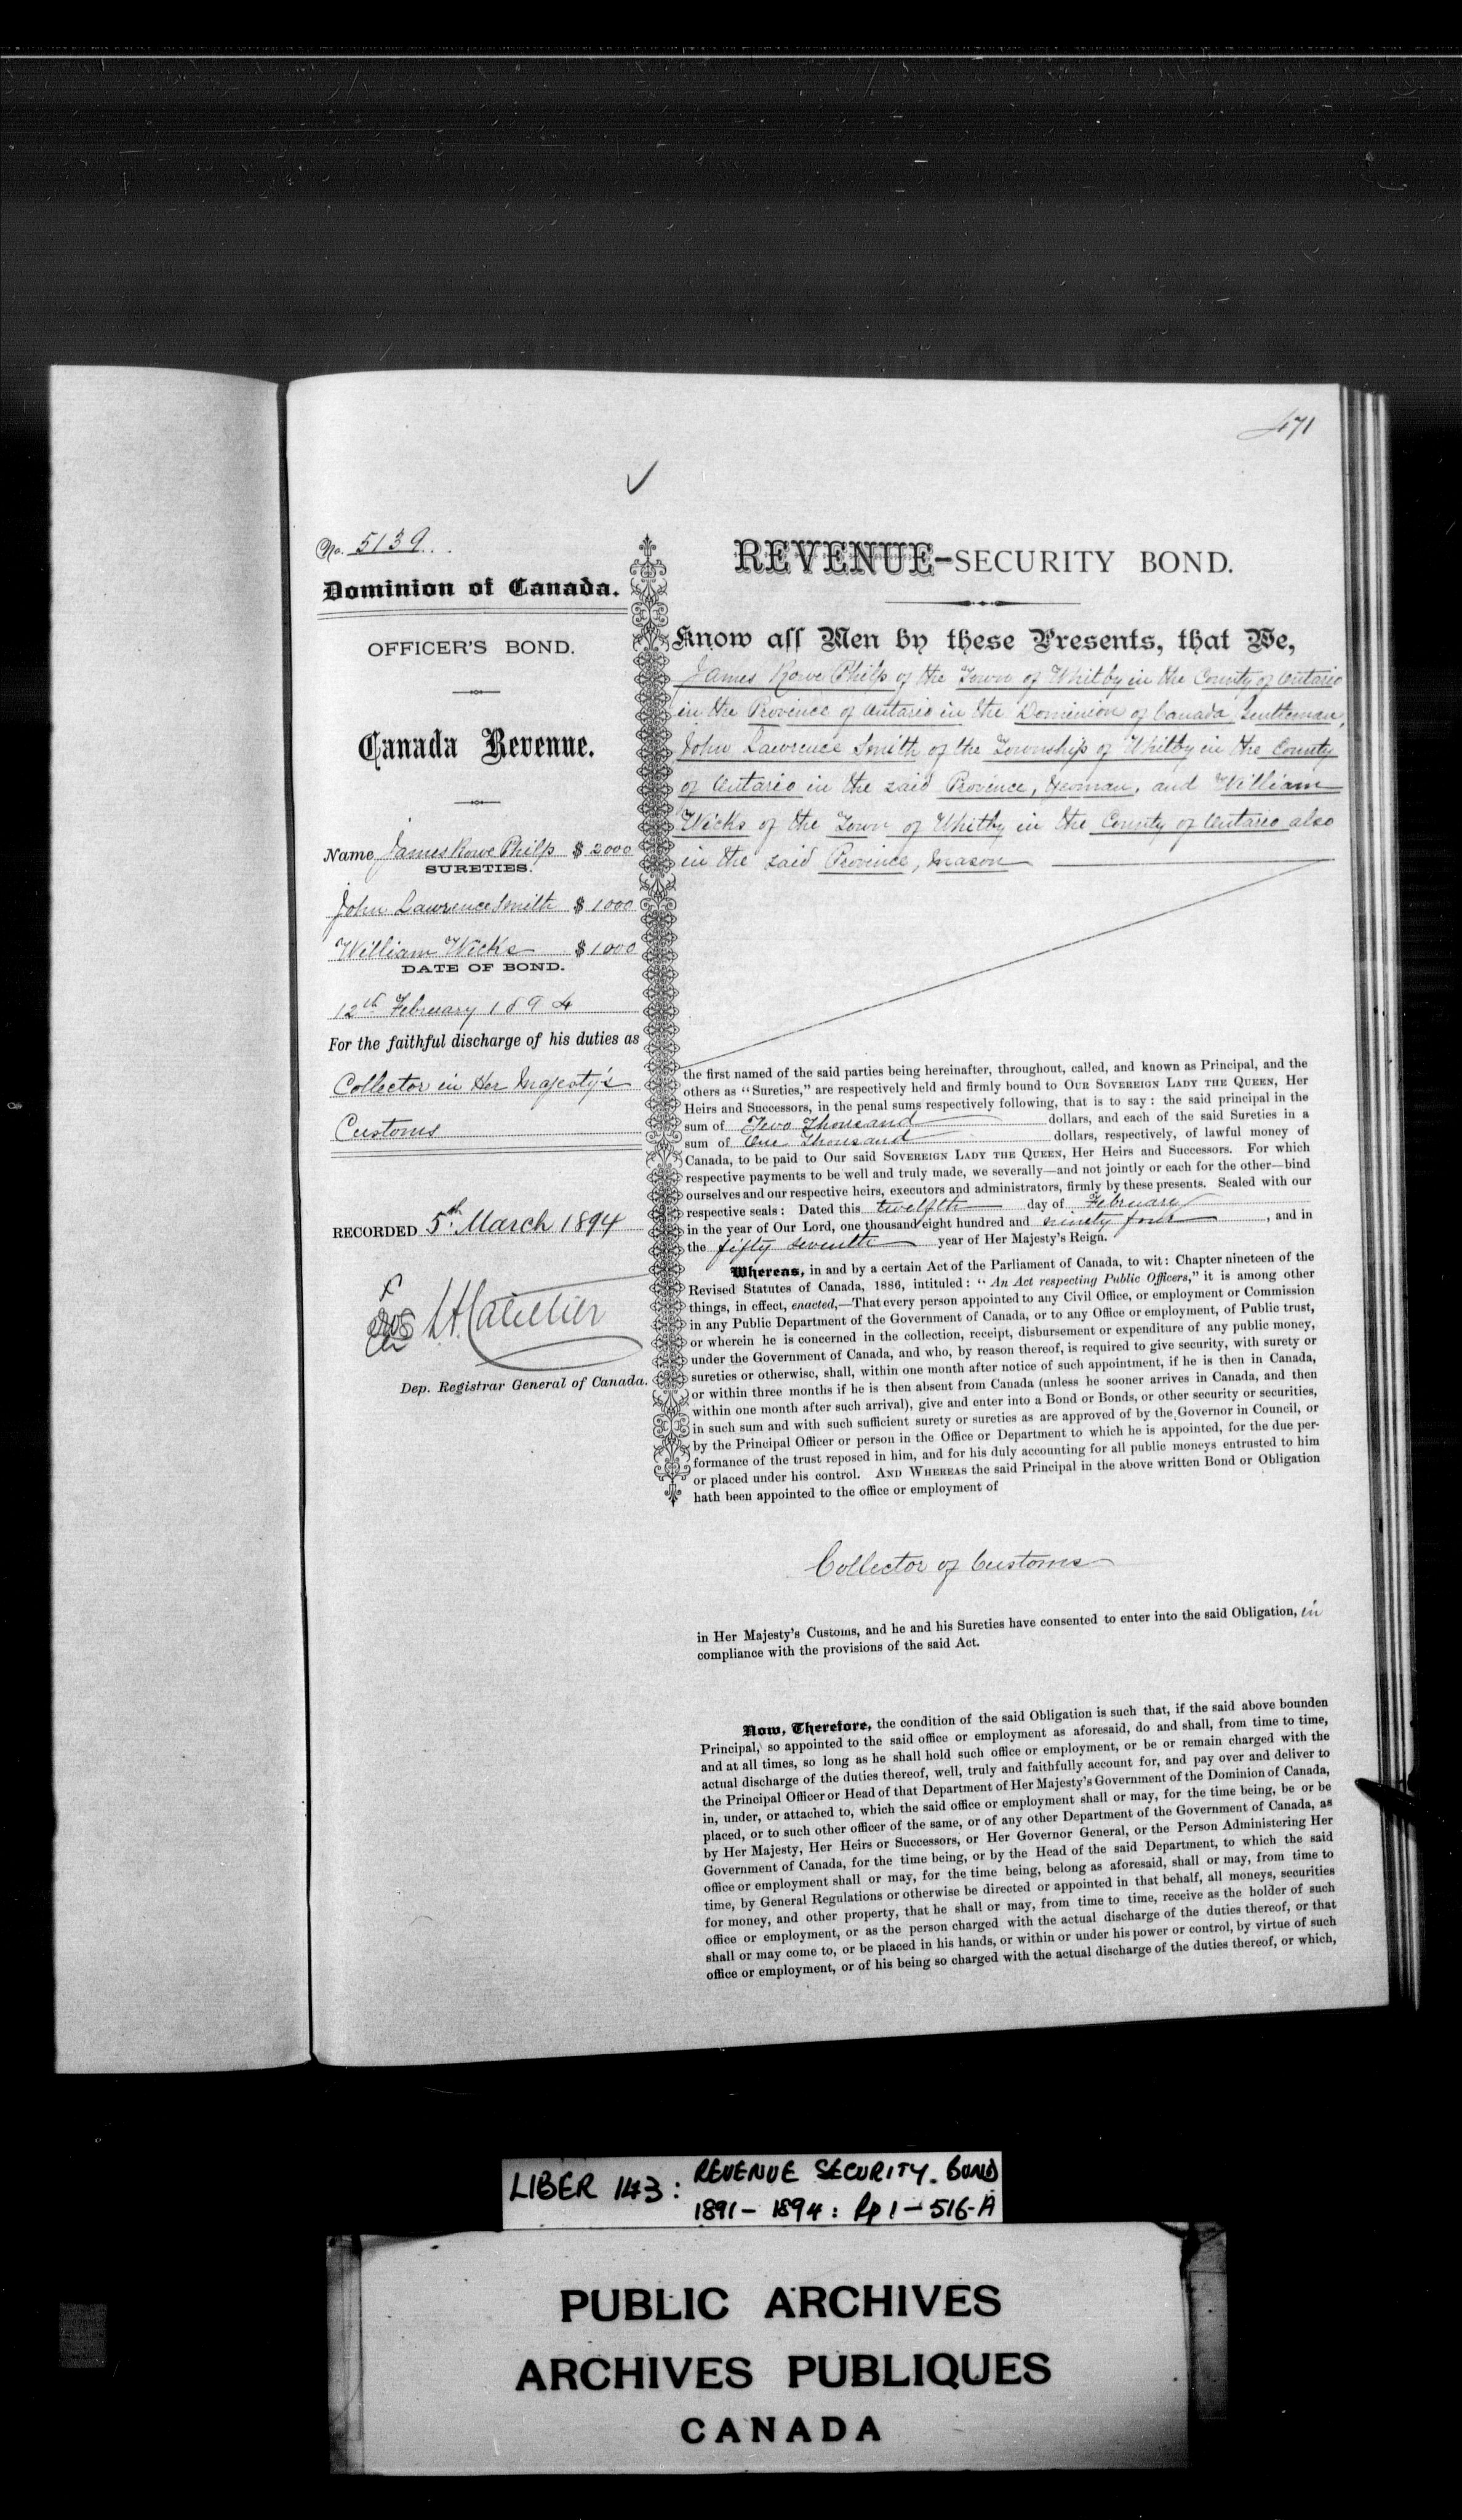 471
No. 5139
Dominion of Canada.
OFFICER'S BOND.
Canada Revenue.
Name James Rowe Philp $ 2000
SURETIES.
John Lawrence Smith $ 1000
William Wicks $ 1000
DATE OF BOND.
12th February 1894
For the faithful discharge of his duties as
Collector in Her Majesty's
Customs
RECORDED 5th March 1894
Dep. Registrar General of Canada.
REVENUE-SECURITY BOND.
Know all Men by these Presents, that We,
James Rowe Philp of the Town of Whitby in the County of Ontario
in the Province of Ontario in the Dominion of Canada, Gentleman,
John Lawrence Smith of the Township of Whitby in the County
of Ontario in the said Province, Yeoman, and William
Wicks of the Town of Whitby in the County of Ontario also
in the said Province, Mason
the first named of the said parties being hereinafter, throughout, called, and known as Principal, and the
others as "Sureties," are respectively held and firmly bound to OUR SOVEREIGN LADY THE QUEEN, Her
Heirs and Successors, in the penal sums respectively following, that is to say: the said principal in the
sum of Two Thousand dollars, and each of the said Sureties in a
sum of One Thousand dollars, respectively, of lawful money of
Canada, to be paid to Our said SOVEREIGN LADY THE QUEEN, Her Heirs and Successors. For which
respective payments to be well and truly made, we severally—and not jointly or each for the other—bind
ourselves and our respective heirs, executors and administrators, firmly by these presents. Sealed with our
respective seals: Dated this twelfth day of February
in the year of Our Lord, one thousand eight hundred and ninety four, and in
the fifty seventh year of Her Majesty's Reign.
Whereas, in and by a certain Act of the Parliament of Canada, to wit: Chapter nineteen of the
Revised Statutes of Canada, 1886, intituled: "An Act respecting Public Officers," it is among other
things, in effect, enacted,—That every person appointed to any Civil Office, or employment or Commission
in any Public Department of the Government of Canada, or to any Office or employment, of Public trust,
or wherein he is concerned in the collection, receipt, disbursement or expenditure of any public money,
under the Government of Canada, and who, by reason thereof, is required to give security, with surety or
sureties or otherwise, shall, within one month after notice of such appointment, if he is then in Canada,
or within three months if he is then absent from Canada (unless he sooner arrives in Canada, and then
within one month after such arrival), give and enter into a Bond or Bonds, or other security or securities,
in such sum and with such sufficient surety or sureties as are approved of by the Governor in Council, or
by the Principal Officer or person in the Office or Department to which he is appointed, for the due per-
formance of the trust reposed in him, and for his duly accounting for all public moneys entrusted to him
or placed under his control. AND WHEREAS the said Principal in the above written Bond or Obligation
hath been appointed to the office or employment of
Collector of Customs
in Her Majesty's Customs, and he and his Sureties have consented to enter into the said Obligation, in
compliance with the provisions of the said Act.
Now, Therefore, the condition of the said Obligation is such that, if the said above bounden
Principal, so appointed to the said office or employment as aforesaid, do and shall, from time to time,
and at all times, so long as he shall hold such office or employment, or be or remain charged with the
actual discharge of the duties thereof, well, truly and faithfully account for, and pay over and deliver to
the Principal Officer or Head of that Department of Her Majesty's Government of the Dominion of Canada,
in, under, or attached to, which the said office or employment shall or may, for the time being, be or be
placed, or to such other officer of the same, or of any other Department of the Government of Canada, as
by Her Majesty, Her Heirs or Successors, or Her Governor General, or the Person Administering Her
Government of Canada, for the time being, or by the Head of the said Department, to which the said
office or employment shall or may, for the time being, belong as aforesaid, shall or may, from time to
time, by General Regulations or otherwise be directed or appointed in that behalf, all moneys, securities
for money, and other property, that he shall or may, from time to time, receive as the holder of such
office or employment, or as the person charged with the actual discharge of the duties thereof, or that
shall or may come to, or be placed in his hands, or within or under his power or control, by virtue of such
office or employment, or of his being so charged with the actual discharge of the duties thereof, or which,
LIBER 143: REVENUE SECURITY. BOND
1891-1894: Pp 1-516-A
PUBLIC ARCHIVES
ARCHIVES PUBLIQUES
CANADA